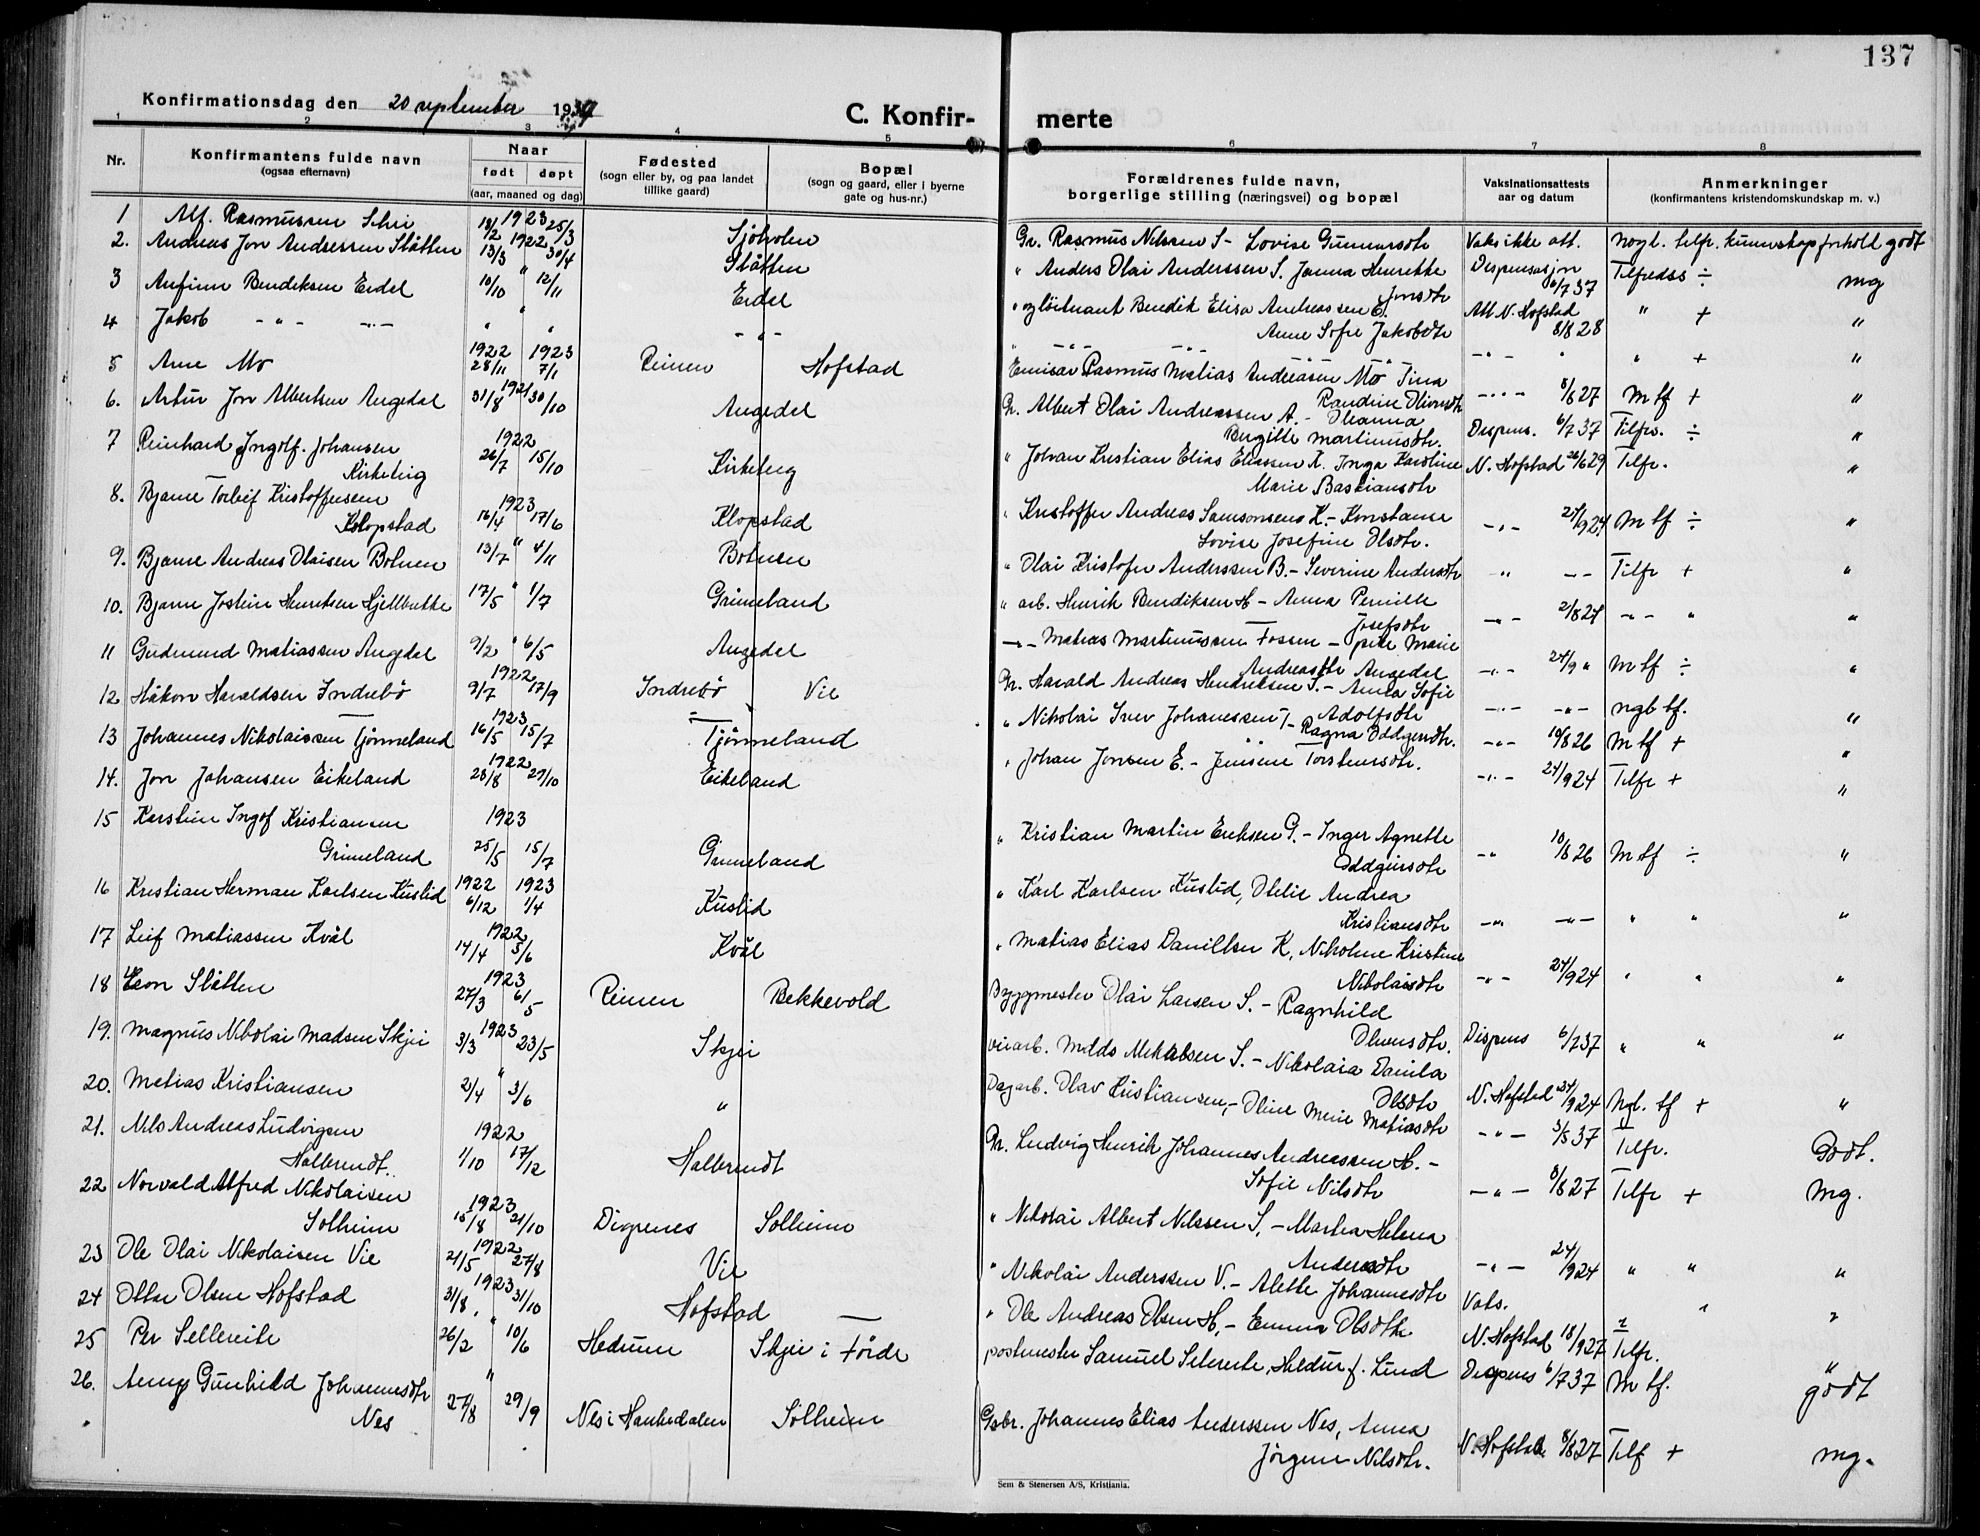 137
Konfirmationsdag den 20 september 1937
C. Konfirmerte
1 2 3 4 5 6 7 8
Nr.
Konfirmantens fulde navn
(ogsaa efternavn)
Naar
født døpt
(aar, maaned og dag)
Fødested
(sogn eller by, og paa landet
tillike gaard)
Bopæl
(sogn og gaard, eller i byerne
gate og hus-nr.)
Forældrenes fulde navn,
borgerlige stilling (næringsvei) og bopæl
Vaksinationsattests
aar og datum
Anmerkninger
(konfirmantens kristendomskundskap m. v.)
1 Alf. Rasmussen 1923 18/2 25/3 Sjøholen Gr. Rasmus Nilssen S - Lovise Gunnarsdtr Vaks ikke att. nogl. tilfr. kunnskap forhold godt
2. Andreas Jon Anderssen Slåtten 1922 13/3 30/4 Slåtten " Anders Olai Anderssen S. Janna Henrette Jonsdtr Dispensasjon 6/7 37 Tilfredss ÷ mg
3 Anfinn Bendiksen Eidel 10/10 " 12/11 Eidel " og løitnant Bendik Elisa Andreassen E. Anne Sofie Jakobsdtr Att N. Hofstad 8/8 28 " + "
4 Jakob -"- -"- " " " -"- " -"- -"- -"- " " + "
5 Arne Mo 1922 1923 28/11 7/1 Reinen Hofstad Emissær Rasmus Matias Andreasen Mo Tina Randine Olivinsdtr -"- 8/8 27 M tf + "
6. Artur Jon Albertsen Angedal 1921 31/8 30/10 Angedal Gr. Albert Olai Andreassen A. - Oleanna Birgitte Martinusdtr. Dispens. 6/7 37 Tilfrs. ÷ "
7 Reinhard Ingolf. Johansen
Kirketeig 1922 26/7 15/10 Kirketeig " Johan Kristian Elias Eliassen K. Inga Karoline
Marie Bastiansdtr N. Hofstad 26/6 29 Tilfr. "
8. Bjarne Torleif Kristoffersen
Klopstad 1923 16/4 17/6 Klopstad " Kristoffer Andreas Samsonsens K. - Konstanse
Lovise Josefine Olsdtr. -"- 24/9 24 M tf ÷ "
9. Bjarne Andreas Olaisen Botnen 13/7 " 4/11 Botnen " Olai Kristofer Anderssen B. - Severine Andersdtr " -- Tilfr + "
10. Bjarne Jostein Henriksen Hjellbrekke 17/5 " 1/7 Grimeland " arb. Henrik Bendiksen H - Anna Pernille
Josefsdtr -"- 2/8 27 -"- " "
11 Gudmund Matiassen Angedal 9/2 " 6/5 Angedal -"- Matias Martinussen Fossen - pike Marie
Andreasdtr Angedal -"- 24/9 " M tf ÷ "
12 Håkon Haraldsen Indrebø 1922 9/7 17/9 Indrebø Vie Gr. Harald Andreas Hendriksen I. - Anna Sofie
Adolfsdtr -"- -"- ngl tf. "
13 Johannes Nikolaissen Tjønneland 1923 16/5 15/7 Tjønneland " Nikolai Iver Johanessen T - Ragna Oddgeirsdtr. -"- 10/8 26 M tf + "
14. Jon Johansen Eikeland 1922 28/8 29/10 Eikeland " Johan Jonsen E. - Jensine Torsteinsdtr. -"- 24/9 24 Tilfr + "
15 Karstein Ingof Kristiansen
Grimeland 1923 25/5 15/7 Grimeland " Kristian Martin Eriksen G. - Inger Agnette
Oddgeirsdtr -"- 10/8 26 M tf ÷ "
16 Kristian Herman Karlsen Kuslid 1922 1923 6/12 1/4 Kuslid " Karl Karlsen Kuslid, Otelie Andrea
Kristiansdtr -"- -"- " " "
17 Leif Matiassen Kvål 1922 14/4 5/6 Kvål " Matias Elias Danilssen K, Nikoline Kristine
Nikolaisdtr -"- 24/9 24 " " "
18 Leon Slåtten 1923 27/3 6/5 Reinen Bekkevold Byggmester Olai Larsen S. - Ragnhild
Olsensdtr. Dispens 6/7 37 " " "
19. Magnus Nikolai Madsen Skjei 1923 3/3 23/5 Skjei veiarb. Madds Mekalsen S. - Nikolaia Danila
Olsdtr N. Hofstad 24/9 24 Ngl. tf + "
20. Matias Kristiansen 2/4 " 3/6 " Dagarb. Olav Kristiansen, - Oline Marie Matiasdtr -"- 3/5 37 Tilfr. Godt.
21. Nils Andreas Ludvigsen
Halbrendt. 1922 1/10 17/12 Halbrendt Gr. Ludvig Henrik Johannes Andreassen H. -
Sofie Nilsdtr -"- 8/8 27 Tilfr + mg.
22 Norvald Alfred Nikolaisen
Solheim 1923 15/8 21/10 Digrenes Solheim " Nikolai Albert Nilssen S, - Martha Helena
Andersdtr -"- 24/9 24 " " "
23 Ole Olai Nikolaisen Vie 1922 21/5 27/8 Vie " Nikolai Anderssen V. - Alette Johannesdtr Vaks. " "
24 Ottar Olsen Hofstad 1923 31/8 31/10 Hofstad — " Ole Andreas Olsen H, - Emma Olsdtr N. Hofstad 18/9 27 Tilfr. "
25 Per Sellereite 26/2 " 10/6 Hedrum Skjei i Førde postmester Samuel Selereite, Heldur f. Lund Dispens 6/7 37 M tf. godt
26. Anny Gunhild Johannesdtr
Nes 27/8 " 29/9 Nes i Haukedalen Solheim Gsbr. Johannes Elias Anderssen Nes, Anna
Jørgine Nilsdtr. N. Hofstad 8/8 27 Tilf + mg.
Sem & Stenersen A/S, Kristiania.